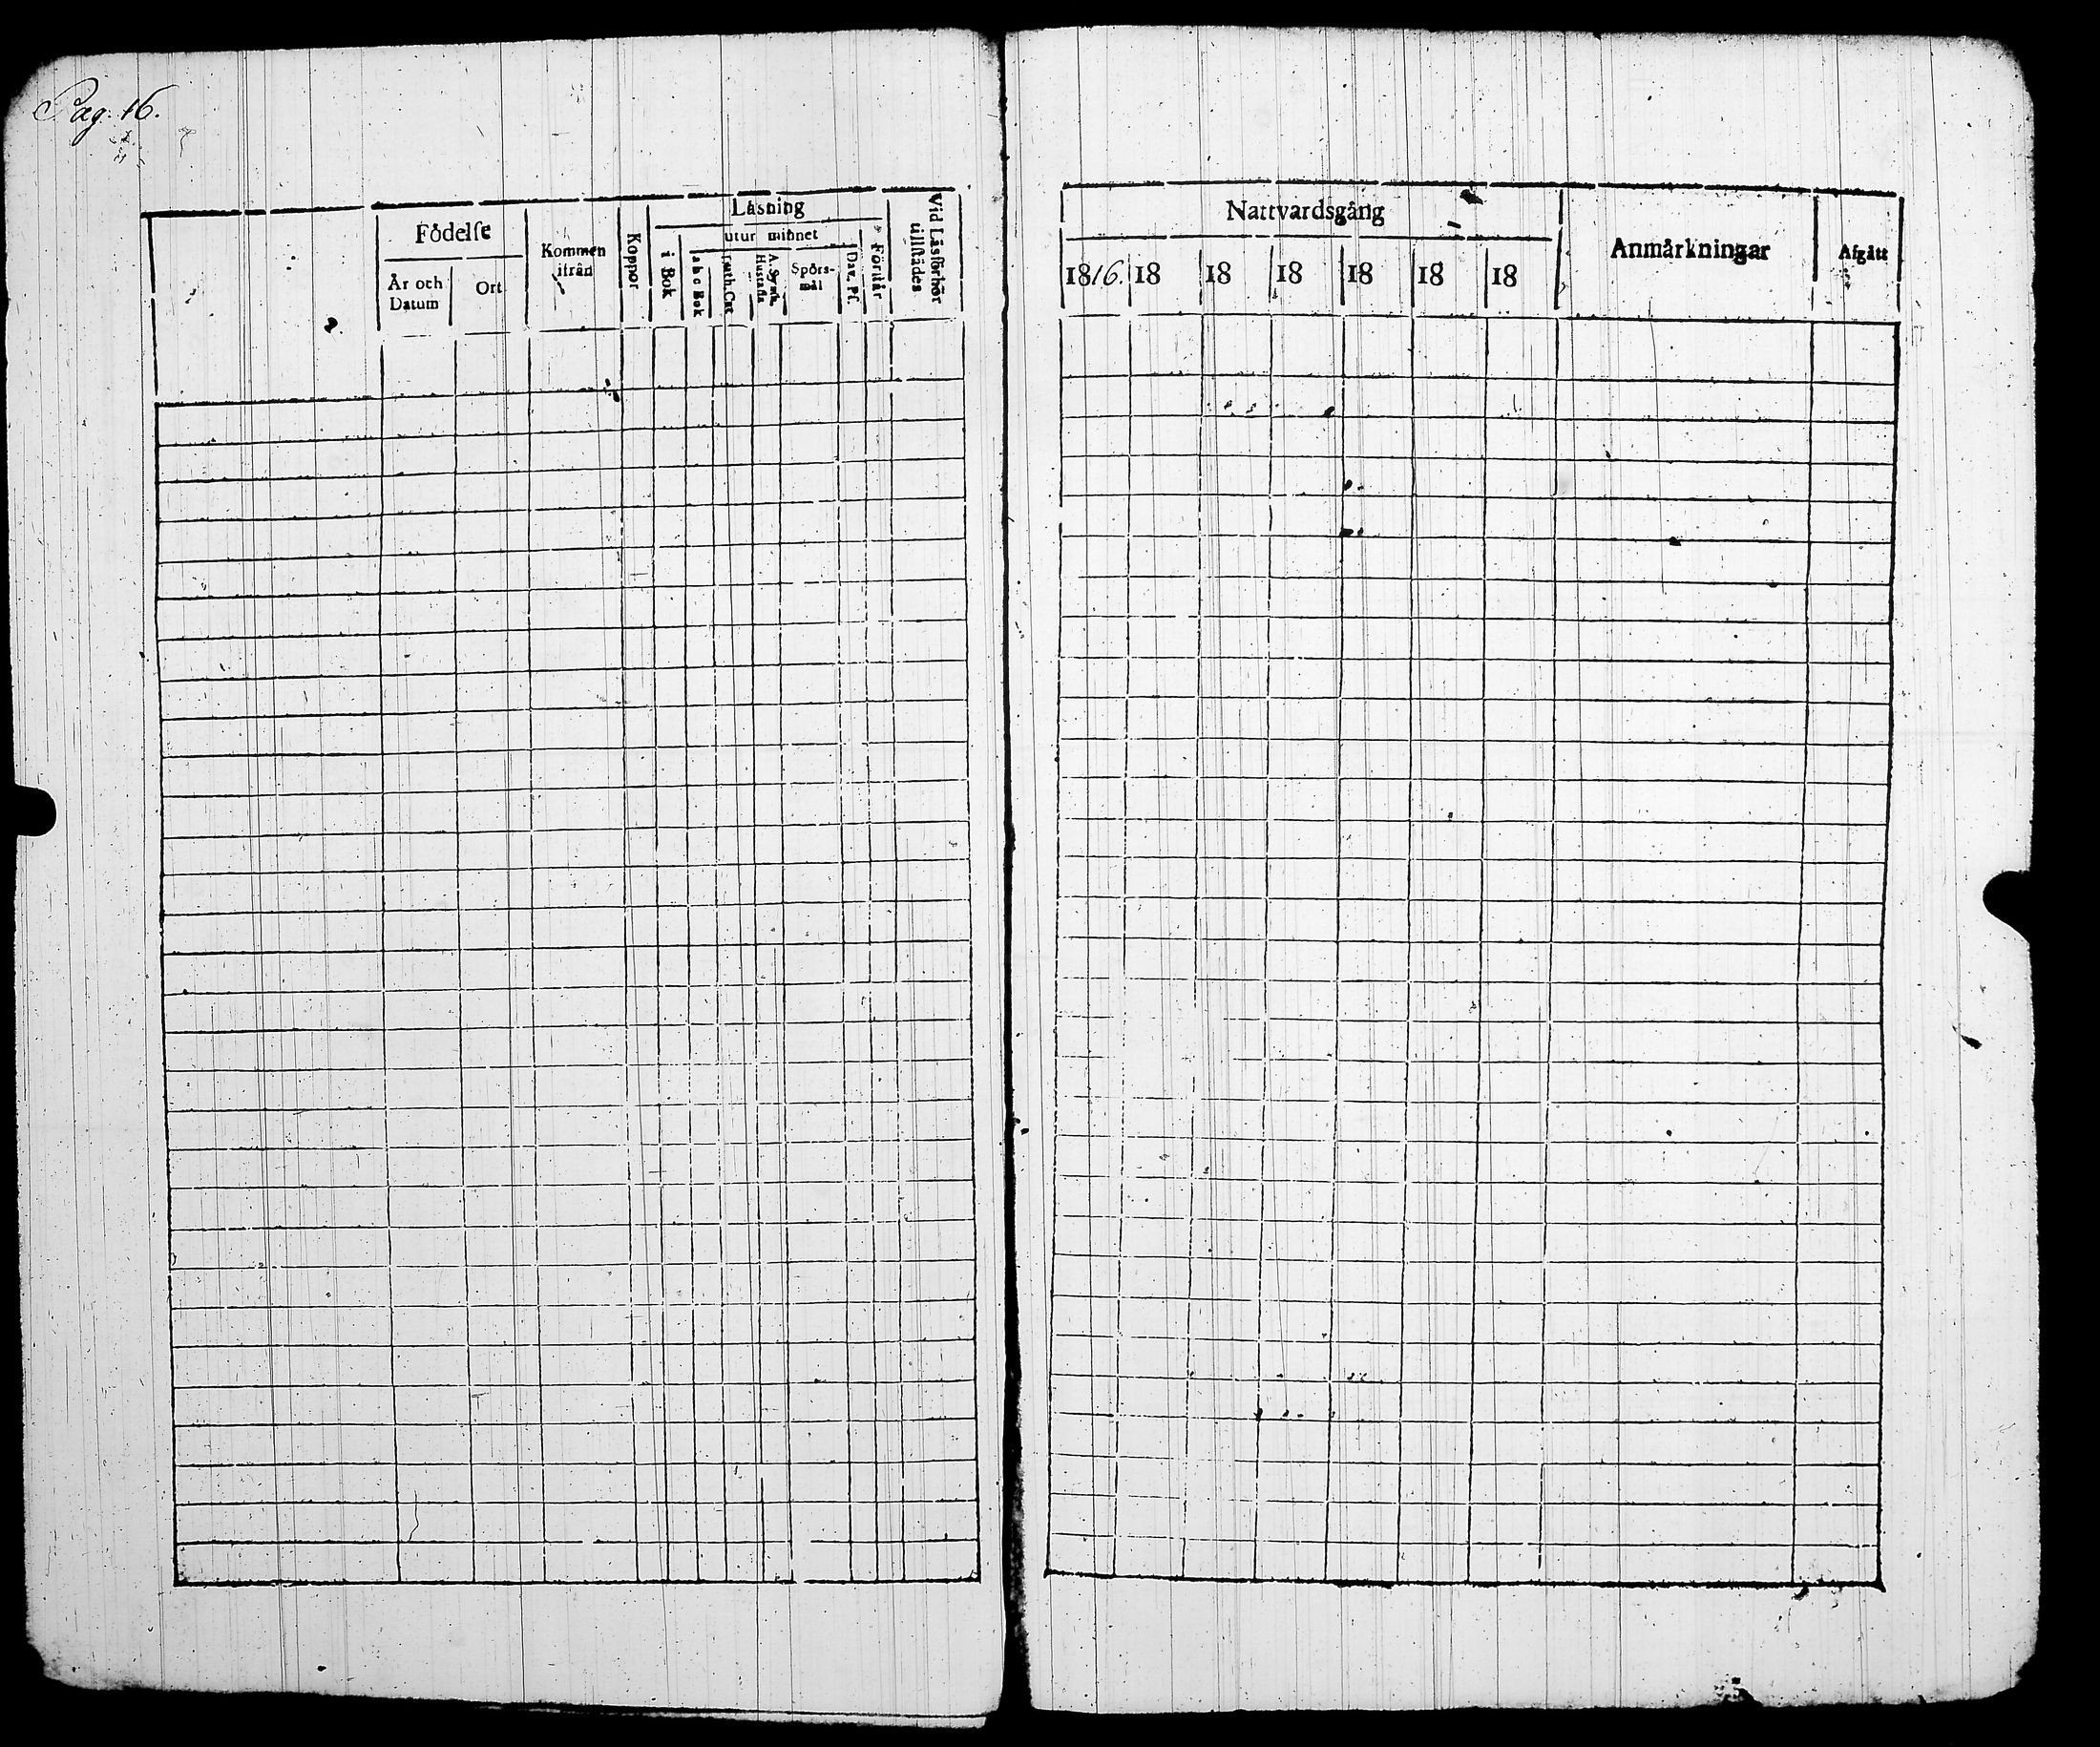 Pag. 16.
Födelse
År och Datum
Ort
Kommen ifrån
Koppor
Läsning
i Bok
utur minnet
a b c Bok
Luth. Cat.
A. Symb. Hustafla
Spörs-mål
Dav. Ps.
Förstår
Vid Läsförhör tillstädes
Nattvardsgång
1816. 18 18 18 18 18 18
Anmärkningar
Afgått